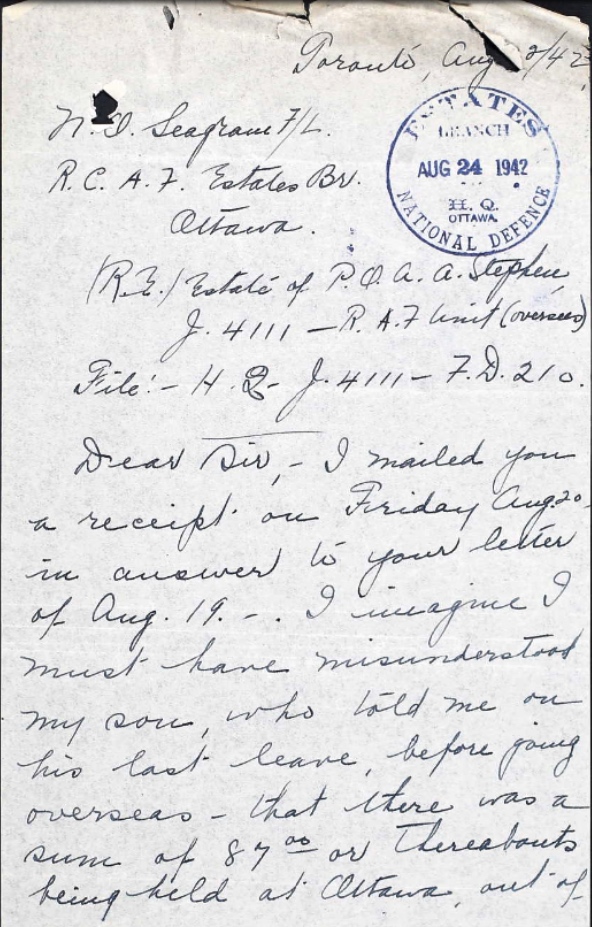 Toronto, Aug 2/42
N. O. Seagram F/L.
R. C. A. F. Estates Br.
Ottawa.
ESTATES
BRANCH
AUG 24 1942
H. Q.
OTTAWA.
NATIONAL DEFENCE
(R.E.) Estate of P.O. A. A. Stephen
J. 4111 - R.A.F Unit (overseas)
File:- H. Q- J. 4111- F.D. 210.
Dear Sir,- I mailed you
a receipt on Friday Aug. 20-
in answer to your letter
of Aug. 19.-. I imagine I
must have misunderstood
my son, who told me on
his last leave, before going
overseas - that there was a
sum of 87 00 or thereabouts
being held at Ottawa, out of